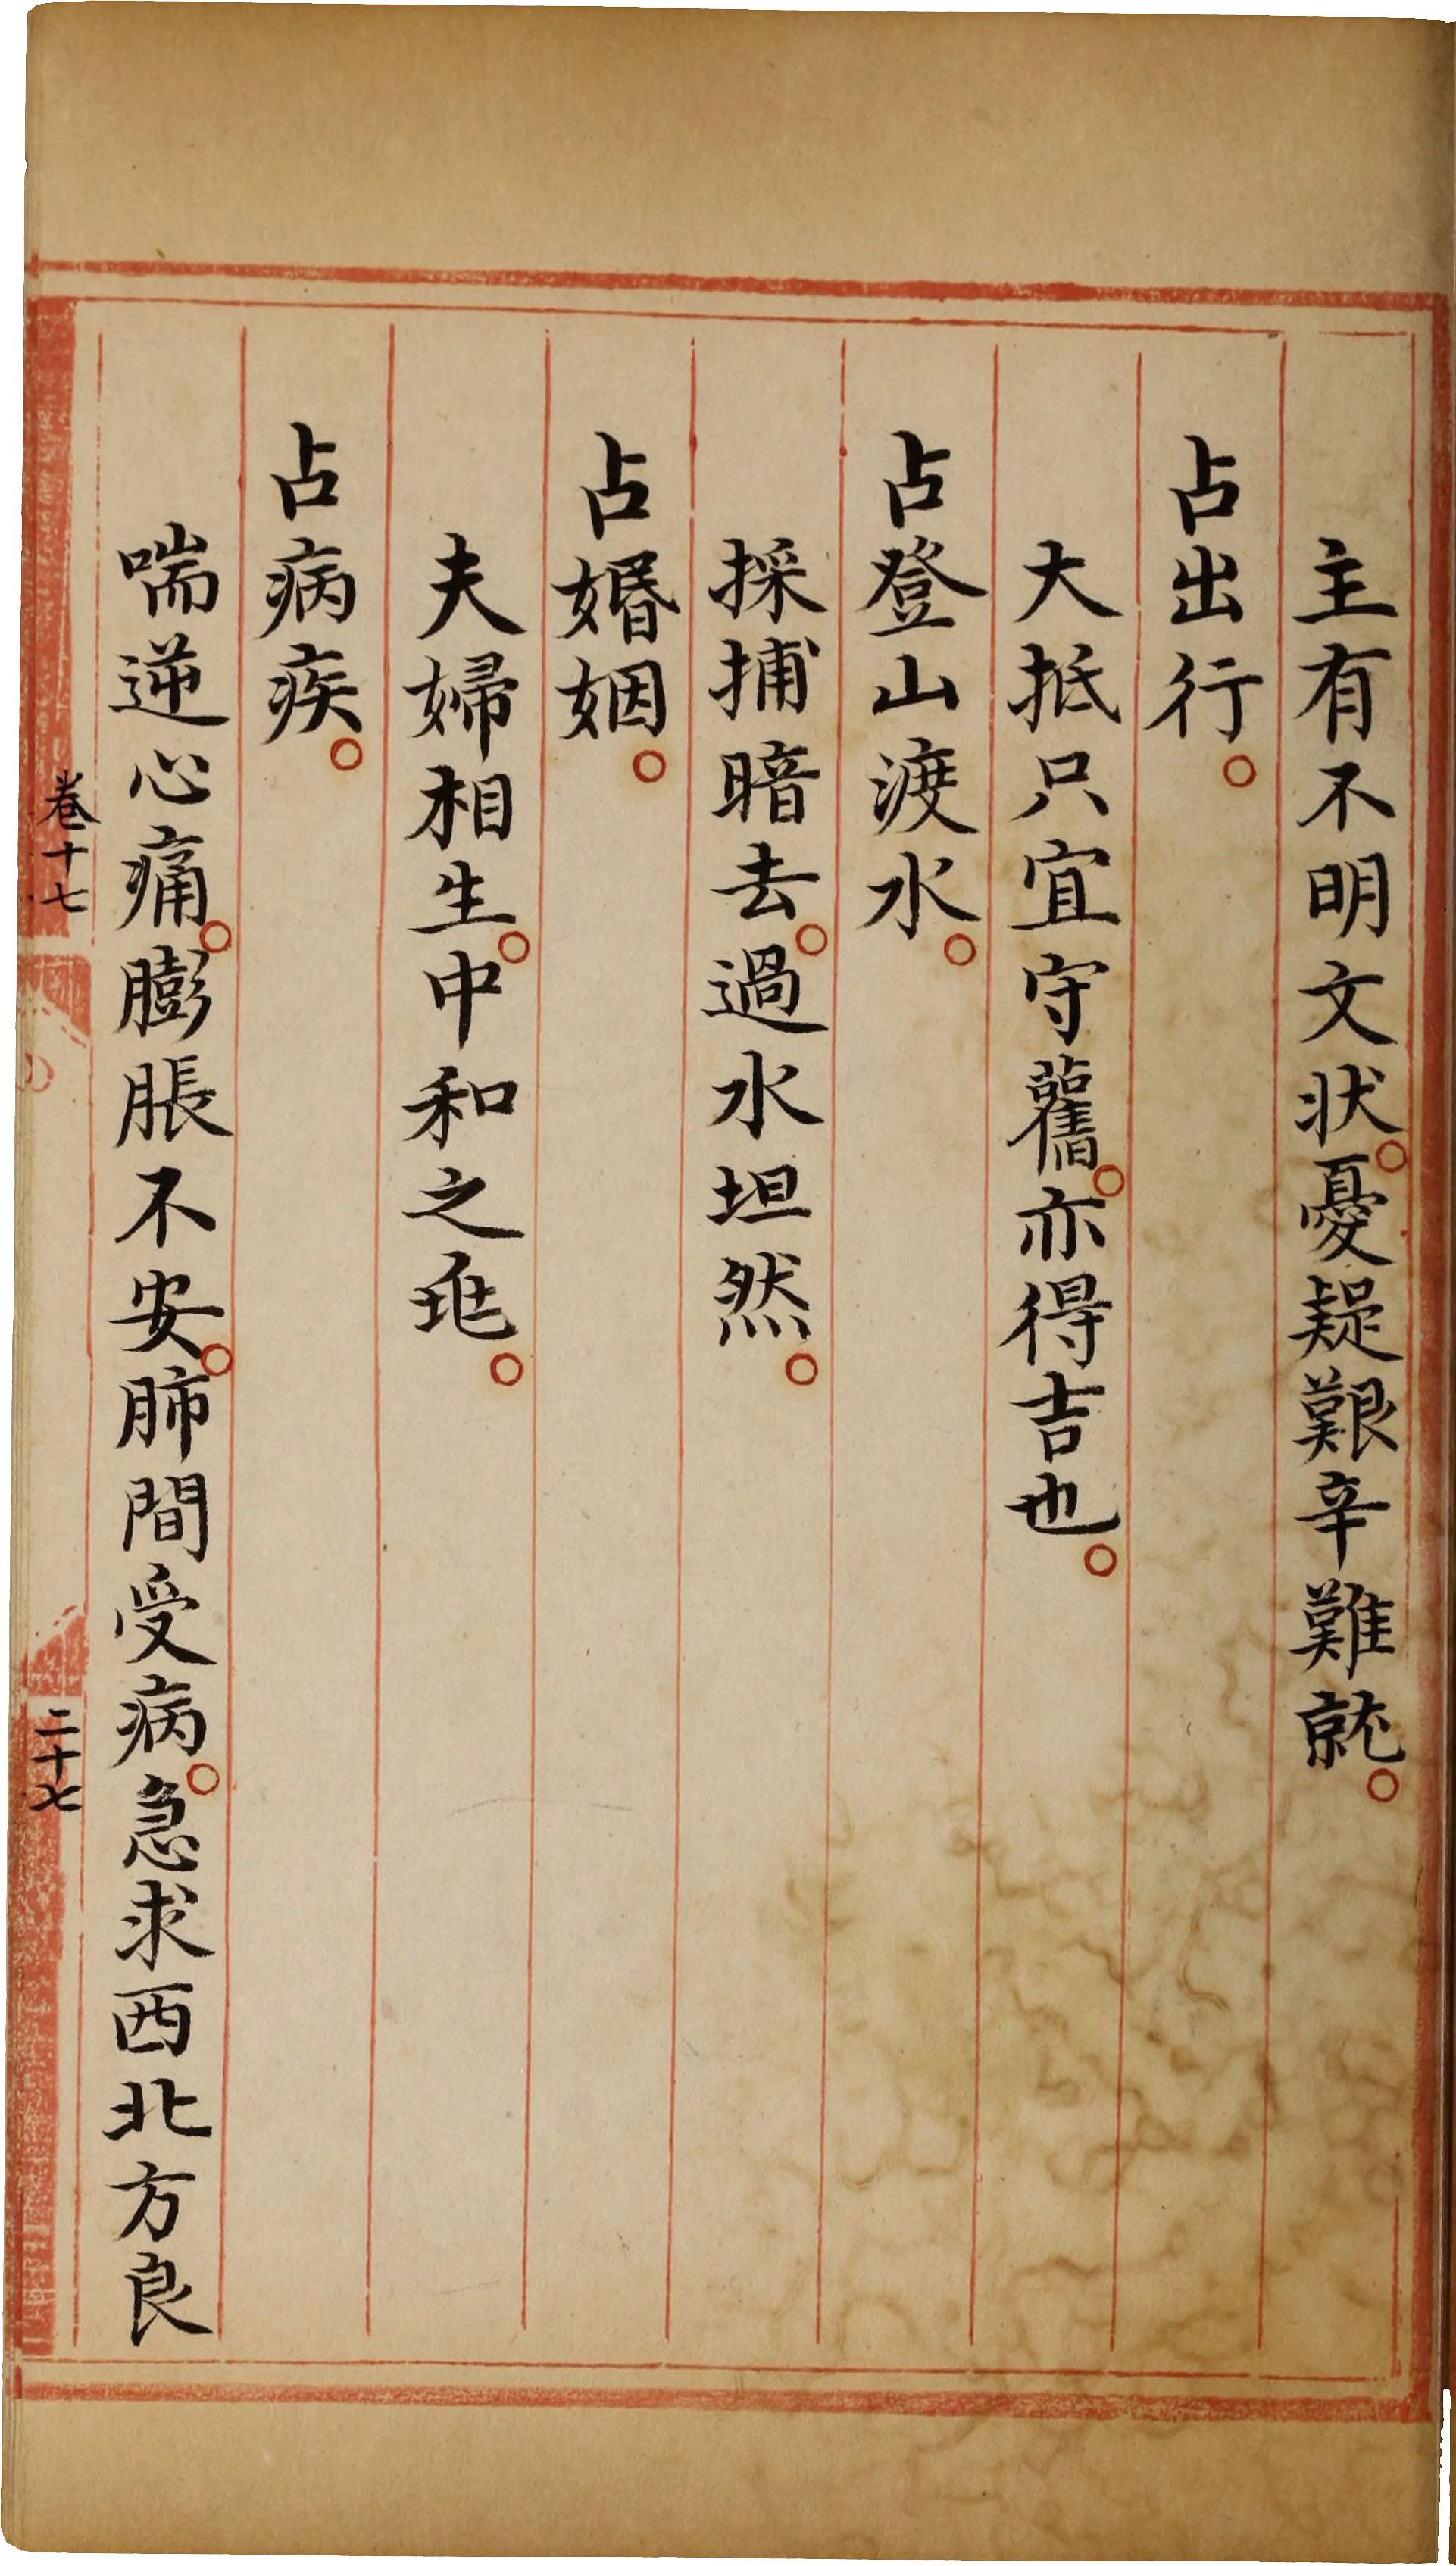 主有不明文狀。憂疑艱辛難就。
占出行。
大抵只宜守舊。亦得吉也。
占登山渡水。
採捕暗去。過水坦然。
占婚姻。
夫婦相生。中和之兆。
占病疾。
喘逆心痛。膨脹不安。肺間受病。急求西北方良
卷十七
二十七